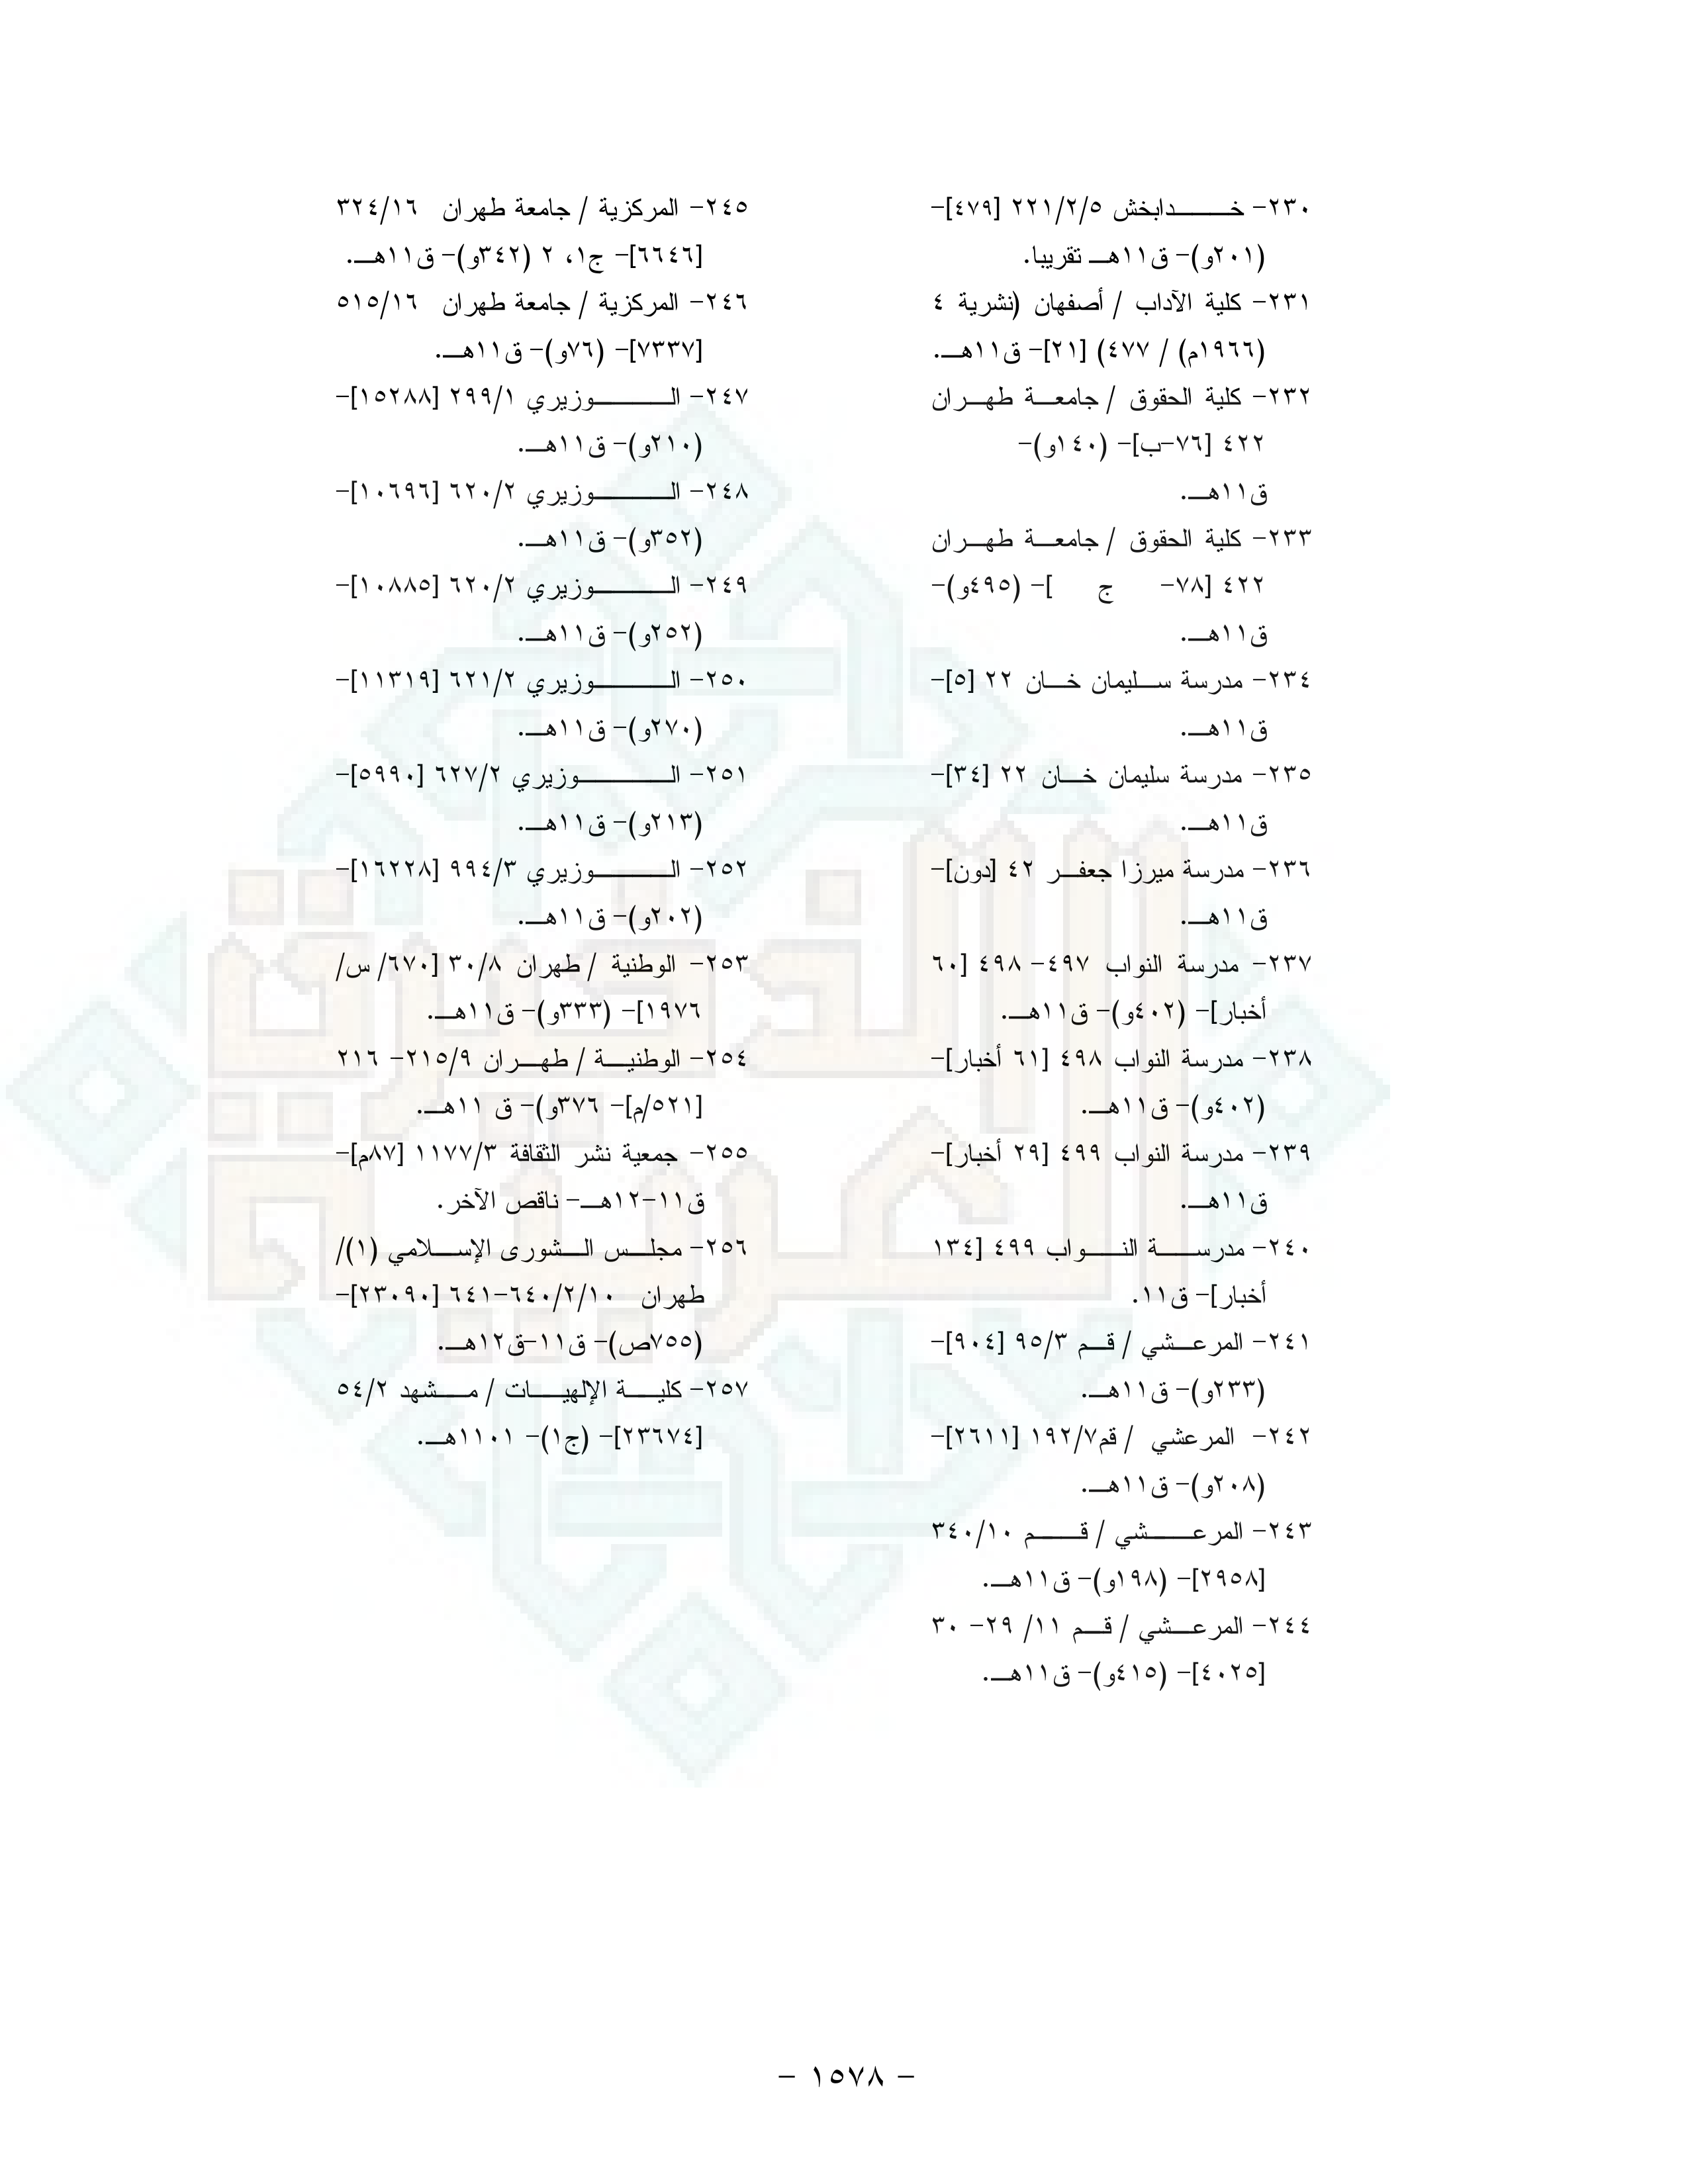 ٢٣٠- خدابخش ٢٢١/٢/٥ [٤٧٩]-
(٢٠١و)- ق١١هـ تقريبا.
٢٣١- كلية الآداب / أصفهان (نشرية ٤
(١٩٦٦م) / ٤٧٧) [٢١]- ق١١هـ.
٢٣٢- كلية الحقوق / جامعة طهران
٤٢٢ [٧٦-ب]- (١٤٠و)-
ق١١هـ.
٢٣٣- كلية الحقوق / جامعة طهران
٤٢٢ [٧٨- ج ]- (٤٩٥و)-
ق١١هـ.
٢٣٤- مدرسة سليمان خان ٢٢ [٥]-
ق١١هـ.
٢٣٥- مدرسة سليمان خان ٢٢ [٣٤]-
ق١١هـ.
٢٣٦- مدرسة ميرزا جعفر ٤٢ [دون]-
ق١١هـ.
٢٣٧- مدرسة النواب ٤٩٧- ٤٩٨ [٦٠
أخبار]- (٤٠٢و)- ق١١هـ.
٢٣٨- مدرسة النواب ٤٩٨ [٦١ أخبار]-
(٤٠٢و)- ق١١هـ.
٢٣٩- مدرسة النواب ٤٩٩ [٢٩ أخبار]-
ق١١هـ.
٢٤٠- مدرسة النواب ٤٩٩ [١٣٤
أخبار]- ق١١.
٢٤١- المرعشي / قم ٩٥/٣ [٩٠٤]-
(٢٣٣و)- ق١١هـ.
٢٤٢- المرعشي / قم١٩٢/٧ [٢٦١١]-
(٢٠٨و)- ق١١هـ.
٢٤٣- المرعشي / قم ٣٤٠/١٠
[٢٩٥٨]- (١٩٨و)- ق١١هـ.
٢٤٤- المرعشي / قم ١١/ ٢٩- ٣٠
[٤٠٢٥]- (٤١٥و)- ق١١هـ.
٢٤٥- المركزية / جامعة طهران ٣٢٤/١٦
[٦٦٤٦]- ج١، ٢ (٣٤٢و)- ق١١هـ.
٢٤٦- المركزية / جامعة طهران ٥١٥/١٦
[٧٣٣٧]- (٧٦و)- ق١١هـ.
٢٤٧- الوزيري ٢٩٩/١ [١٥٢٨٨]-
(٢١٠و)- ق١١هـ.
٢٤٨- الوزيري ٦٢٠/٢ [١٠٦٩٦]-
(٣٥٢و)- ق١١هـ.
٢٤٩- الوزيري ٦٢٠/٢ [١٠٨٨٥]-
(٢٥٢و)- ق١١هـ.
٢٥٠- الوزيري ٦٢١/٢ [١١٣١٩]-
(٢٧٠و)- ق١١هـ.
٢٥١- الوزيري ٦٢٧/٢ [٥٩٩٠]-
(٢١٣و)- ق١١هـ.
٢٥٢- الوزيري ٩٩٤/٣ [١٦٢٢٨]-
(٢٠٢و)- ق١١هـ.
٢٥٣- الوطنية / طهران ٣٠/٨ [٦٧٠/ س/
١٩٧٦]- (٣٣٣و)- ق١١هـ.
٢٥٤- الوطنية / طهران ٢١٥/٩- ٢١٦
[٥٢١/م]- ٣٧٦و)- ق ١١هـ.
٢٥٥- جمعية نشر الثقافة ١١٧٧/٣ [٨٧م]-
ق١١-١٢هـ- ناقص الآخر.
٢٥٦- مجلس الشورى الإسلامي (١)/
طهران ٦٤٠/٢/١٠-٦٤١ [٢٣٠٩٠]-
(٧٥٥ص)- ق١١-ق١٢هـ.
٢٥٧- كلية الإلهيات / مشهد ٥٤/٢
[٢٣٦٧٤]- (ج١)- ١١٠١هـ.
- ١٥٧٨ -
الذخيرة
العربية